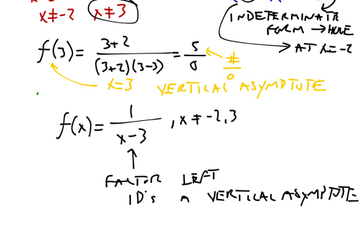 x≠-2 x≠3
INDETERMINATE
FORM → HOLE
AT x=-2
f(3) = 3+2 / (3+2)(3-3) = 5/0 #/0
x=3 VERTICAL ASYMPTOTE
f(x) = 1 / x-3 , x≠-2,3
FACTOR LEFT
ID'S A VERTICAL ASYMPTOTE